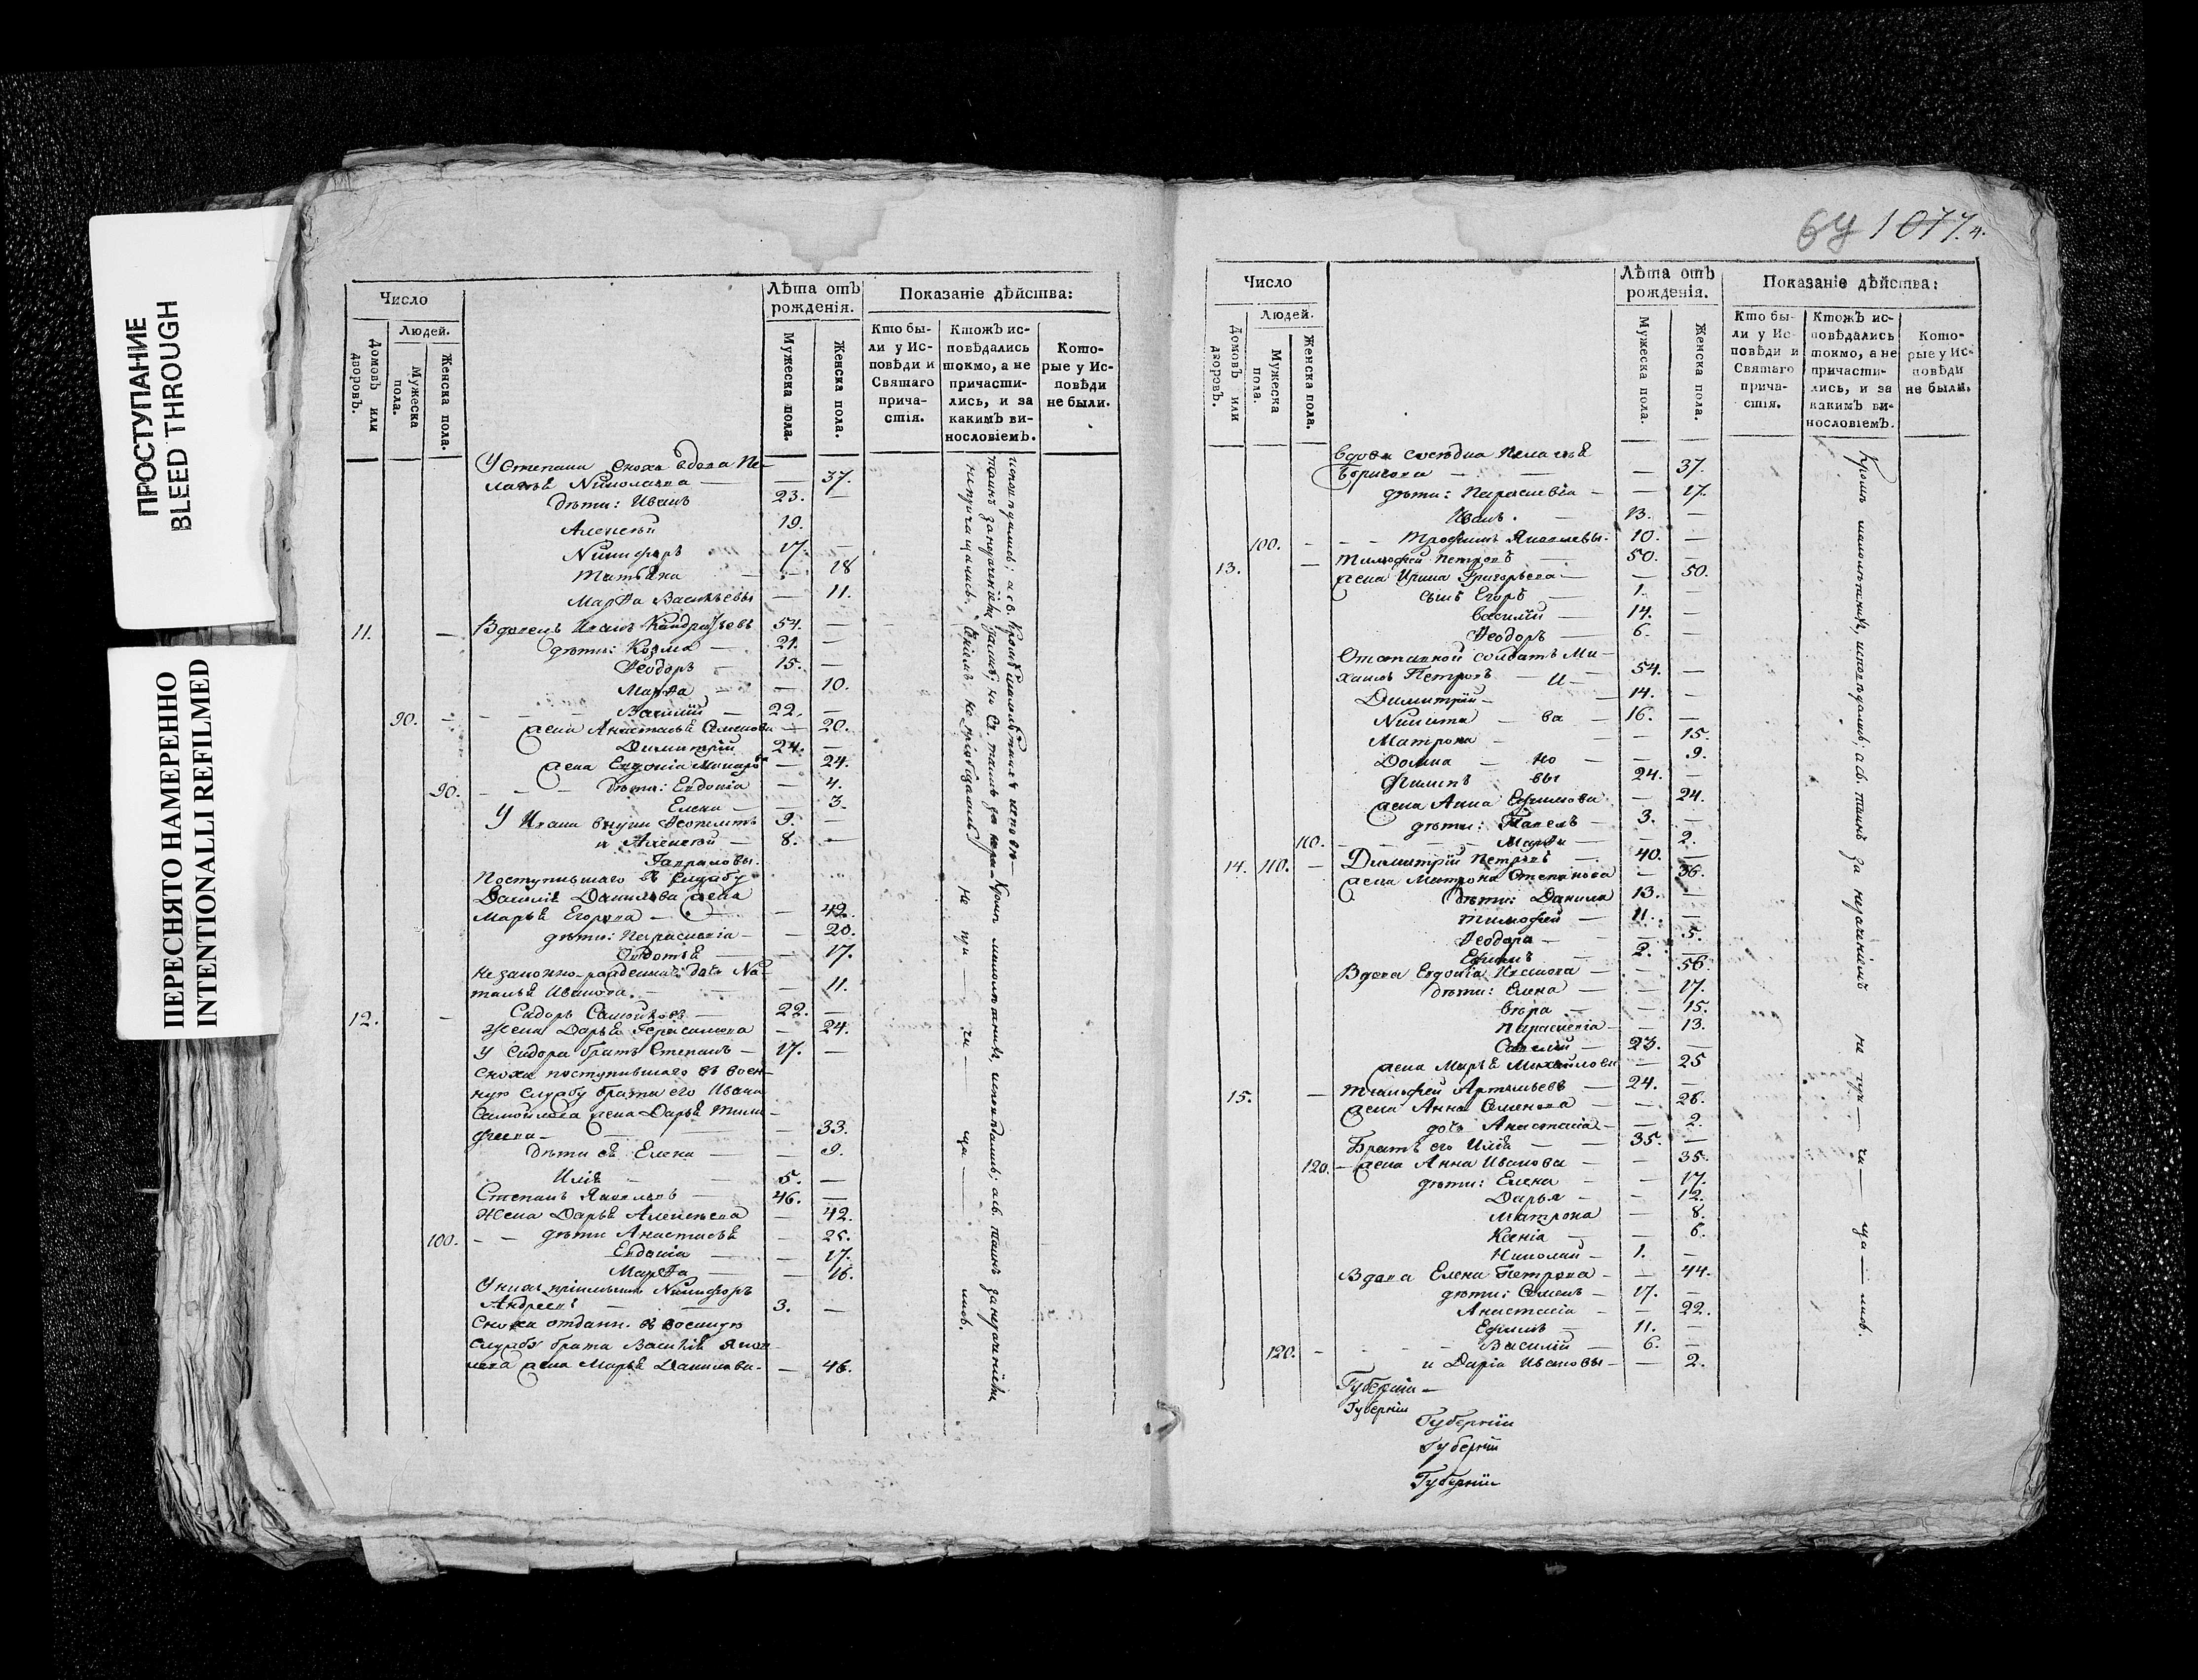 ПРОСТУПАНИЕ
BLEED THROUGH
ПЕРЕСНЯТО НАМЕРЕННО
INTENTIONALLI REFILMED
Число
Людей.
Домовъ или дворовъ.
Мужеска пола.
Женска пола.
Лѣта отъ рожденія.
Мужеска пола.
Женска пола.
Показаніе дѣйства:
Кто были у Исповѣди и Святаго причастія.
Ктожъ исповѣдались токмо, а не причастились, и за какимъ винословіемъ.
Которые у Исповѣди не были.
У Степана сноха вдова Пе-
лагѣя Николаева — — 37.
дѣти: Иванъ 23. —
Алексѣй 19.
Никифоръ 17. —
Татьяна — 18
Марѳа Васильевы — 11.
11. — Вдовецъ Иванъ Кандратьевъ 54. —
дѣти: Козма — 21. —
Ѳеодоръ — 15. —
Марѳа — 10.
90. — Василий — 22. —
жена Анастасья Семенова — 20.
Димитрій 24. —
жена Евдокія — 24.
90. — дѣти: Евдокія — 4.
Елена — 3.
У Ивана внуки 9. —
и Алексѣй — 8. —
Гавриловы.
Поступившаго въ службу
Василія Данилова жена
Марья Егорова — — 42.
дѣти: Параскевія — — 20.
Ѳедотья — — 17.
Незаконно-рожденная дочь На-
талья Иванова. — — 11.
12. — Сидоръ Самойловъ — 22. —
Жена Дарья Герасимова — 24.
У Сидора братъ Степанъ — 17. —
Сноха поступившаго въ воен-
ную службу брата его Ивана
Самойлова жена Дарья Тимо-
феева — — 33.
дѣти ея Елена — — 9.
Илія — 5. —
Степанъ Яковлевъ — 46. —
Жена Дарья Алексѣева — 42.
100. — — дѣти Анастасья — 25.
Евдокія — — 17.
Марѳа — — 16.
У нихъ пріимышъ Никифоръ
Андреевъ — 3. —
Сноха отданн. въ военную
службу брата Василія Яков
лева жена Марья Данилова. — 46.
1077. 4.
Число
Людей.
Домовъ или дворовъ.
Мужеска пола.
Женска пола.
Лѣта отъ рожденія.
Мужеска пола.
Женска пола.
Показаніе дѣйства:
Кто были у Исповѣди и Святаго причастія.
Ктожъ исповѣдались токмо, а не причастились, и за какимъ винословіемъ.
Которые у Исповѣди не были.
вдова сосѣдка Пелагѣя
Борисова — — 37.
дѣти: Параскевіа — — 17.
Иванъ. — 13. —
100. — — Трофимъ Яковлевы. 10. —
13. — Тимофей Петровъ — 50. —
жена Ирина Григорьева — — 50.
сынъ Егоръ — 1. —
Василій — 14. —
Ѳеодоръ — 6. —
Отставной солдатъ Ми-
хаилъ Петровъ — И — 54. —
Димитрій — 14. —
Никита — ва — 16. —
Матрона — — 15.
Домна — но — — 9.
Филипъ — вы 24. —
жена Анна Ефимова — 24.
дѣти: Павелъ — 3. —
110. — Марѳа — — 2.
14. 110. — Димитрій Петровъ — 40. —
жена Матрона Степанова — 36.
дѣти: Данила 13. —
Тимофей — 11. —
Ѳеодора — — 5.
Ефимъ — 2. —
Вдова Евдокіа Иванова — — 56.
дѣти: Елена — — 17.
Вѣра — — 15.
Параскевіа — — 13.
Савелій — 23. —
жена Марья Михайлова — 25
15. — Тимофей Артемьевъ — 24. —
жена Анна Семенова — — 26.
дочь Анастасіа — — 2.
Братъ его Илія — 35. —
120. — жена Анна Иванова — — 35.
дѣти: Елена — — 17.
Дарья — — 12.
Матрона — 8.
Ксеніа — — 6.
Николай — 1. —
Вдова Елена Петрова — — 44.
дѣти: Семенъ — 17. —
Анастасіа — — 22.
Ефимъ — 11. —
120. — Василій — 6. —
и Даріа Ивановы — — 2.
Губерніи —
Губерніи
Губерніи
Губерніи
Губерніи